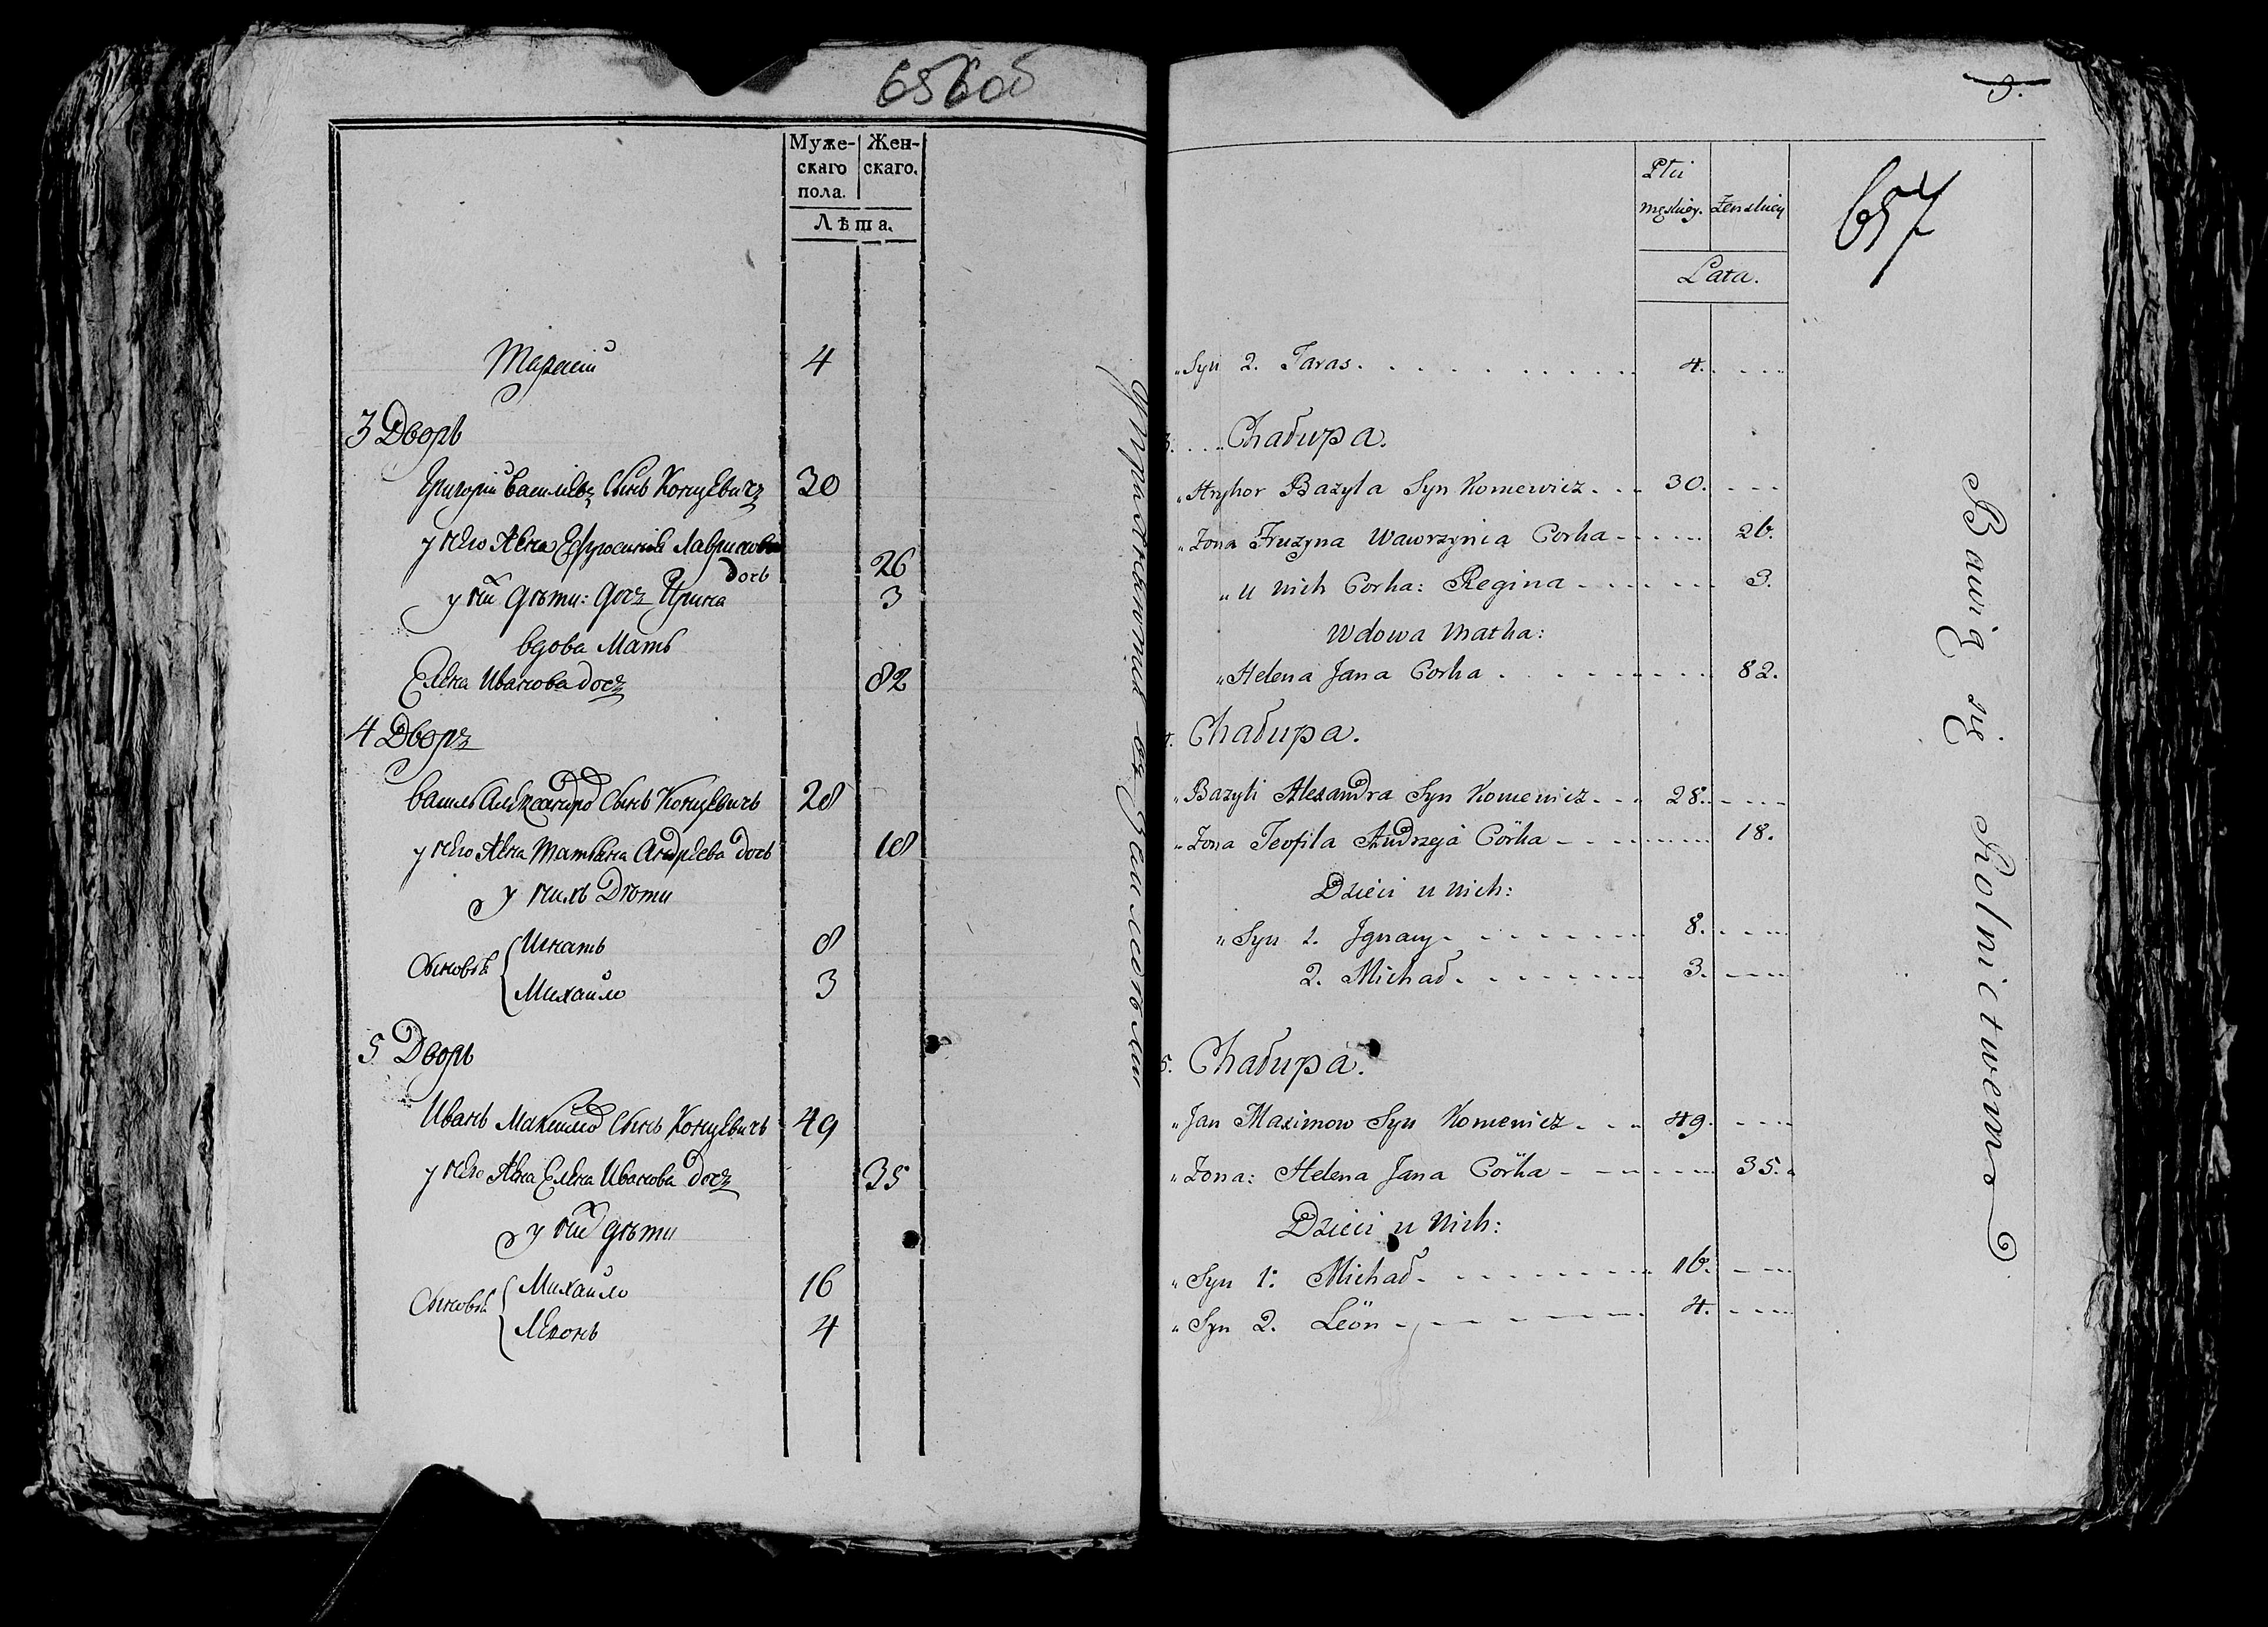 656об
Муже-
скаго
пола.
Жен-
скаго.
Лѣта.
Тарасiй 4
3 Дворъ
Григорiй Василiевъ Сынъ Концевичъ 30
у него Жена Ефросинiя Лавринова
дочь 26
у них дѣти: дочъ Ирина 3
вдова Мать
Елена Иванова дочъ 82
4 Дворъ
Василь Александро Сынъ Концевичь 28
у него Жена Татiана Андрѣева дочь 18
у нихъ Дѣти
Сыновья
Игнатъ 8
Михайло 3
5 Дворъ
Иванъ Максимо Сынъ Концевичь 49
у него Жена Елена Иванова дочъ 35
у них дѣти
Сыновья
Михайло 16
Леонъ 4
3.
657
Płci
męskiey. Zenskiey
Lata.
Syn 2. Taras. 4.
3. Chałupa.
Hryhor Bazyla Syn Koncewicz 30.
Zona Fruzyna Wawrzynca Corka 26.
u nich Corka: Regina 3.
Wdowa Matka:
Helena Jana Corka 82.
4. Chałupa.
Bazyli Alexandra Syn Koncewicz 28.
Zona Teofila Andrzeja Córka 18.
Dzieci u nich:
Syn 1. Jgnacy 8.
2. Michał 3.
5. Chałupa.
Jan Maximow Syn Koncewicz 49.
Zona: Helena Jana Córka 35.
Dzieci u nich:
Syn 1: Michał 16.
Syn 2. Leon 4.
Bawią się Rolnictwem